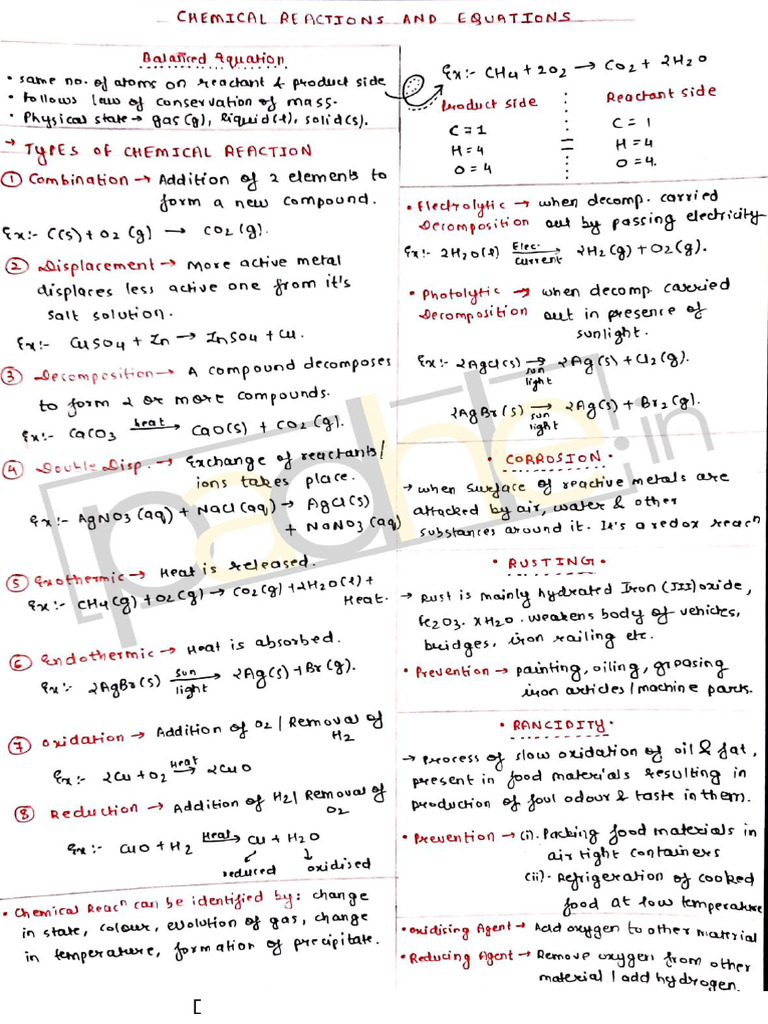 CHEMICAL REACTIONS AND EQUATIONS
Balanced Equation
• same no. of atoms on reactant & product side
• follows law of conservation of mass.
• Physical state → gas (g), liquid (l), solid (s).
→ TYPES OF CHEMICAL REACTION
① Combination → Addition of 2 elements to
form a new compound.
Ex:- C(s) + O2 (g) → CO2 (g).
② Displacement → More active metal
displaces less active one from it's
salt solution.
Ex:- CuSO4 + Zn → ZnSO4 + Cu.
③ Decomposition → A compound decomposes
to form 2 or more compounds.
Ex:- CaCO3 heat→ CaO(s) + CO2 (g).
④ Double Disp. → Exchange of reactants/
ions takes place.
Ex:- AgNO3 (aq) + NaCl (aq) → AgCl(s)
+ NaNO3 (aq)
⑤ Exothermic → Heat is released.
Ex:- CH4(g) + O2(g) → CO2(g) + 2H2O(l) +
Heat.
⑥ Endothermic → Heat is absorbed.
Ex:- 2AgBr(s) sun light→ 2Ag(s) + Br(g).
⑦ Oxidation → Addition of O2 / Removal of
H2
Ex:- 2Cu + O2 Heat→ 2CuO
⑧ Reduction → Addition of H2/ Removal of
O2
Ex:- CuO + H2 Heat→ Cu + H2O
reduced oxidised
• Chemical Reacn can be identified by: change
in state, colour, evolution of gas, change
in temperature, formation of precipitate.
Ex:- CH4 + 2O2 → CO2 + 2H2O
Product side : Reactant side
C = 1 : C = 1
H = 4 = H = 4
O = 4 : O = 4.
• Electrolytic → when decomp. carried
Decomposition out by passing electricity
Ex:- 2H2O(l) Elec. current→ 2H2(g) + O2(g).
• Photolytic → when decomp. carried
Decomposition out in presence of
sunlight.
Ex:- 2AgCl(s) sun light→ 2Ag(s) + Cl2(g).
2AgBr(s) sun light→ 2Ag(s) + Br2(g).
• CORROSION •
→ when surface of reactive metals are
attacked by air, water & other
substances around it. It's a redox reacn
• RUSTING •
→ Rust is mainly hydrated Iron (III) oxide,
Fe2O3. xH2O. weakens body of vehicles,
bridges, iron railing etc.
• Prevention → painting, oiling, greasing
iron articles / machine parts.
• RANCIDITY •
→ Process of slow oxidation of oil & fat,
present in food materials resulting in
production of foul odour & taste in them.
• Prevention → (i). Packing food materials in
air tight containers
(ii). Refrigeration of cooked
food at low temperature
• Oxidising Agent → Add oxygen to other material
• Reducing Agent → Remove oxygen from other
material / add hydrogen.
padhe.in
[